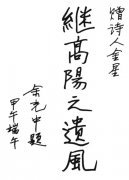 赠诗人金星
继高陽之遺風
余光中題
甲午端午